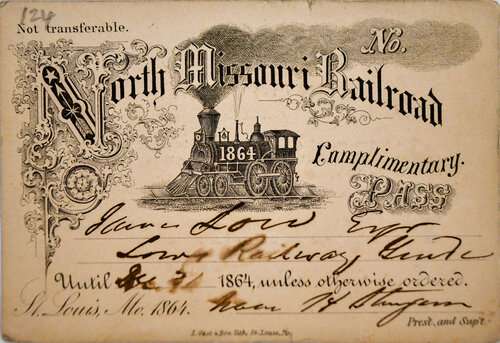 124
Not transferable.
No.
North Missouri Railroad
1864
Complimentary.
PASS
James Low Esqr
Lows Railway, Guide
Until Dec 31 1864, unless otherwise ordered.
St. Louis, Mo. 1864.
Prest. and Supt.
L. Gast & Bro. Lith. St. Louis, Mo.